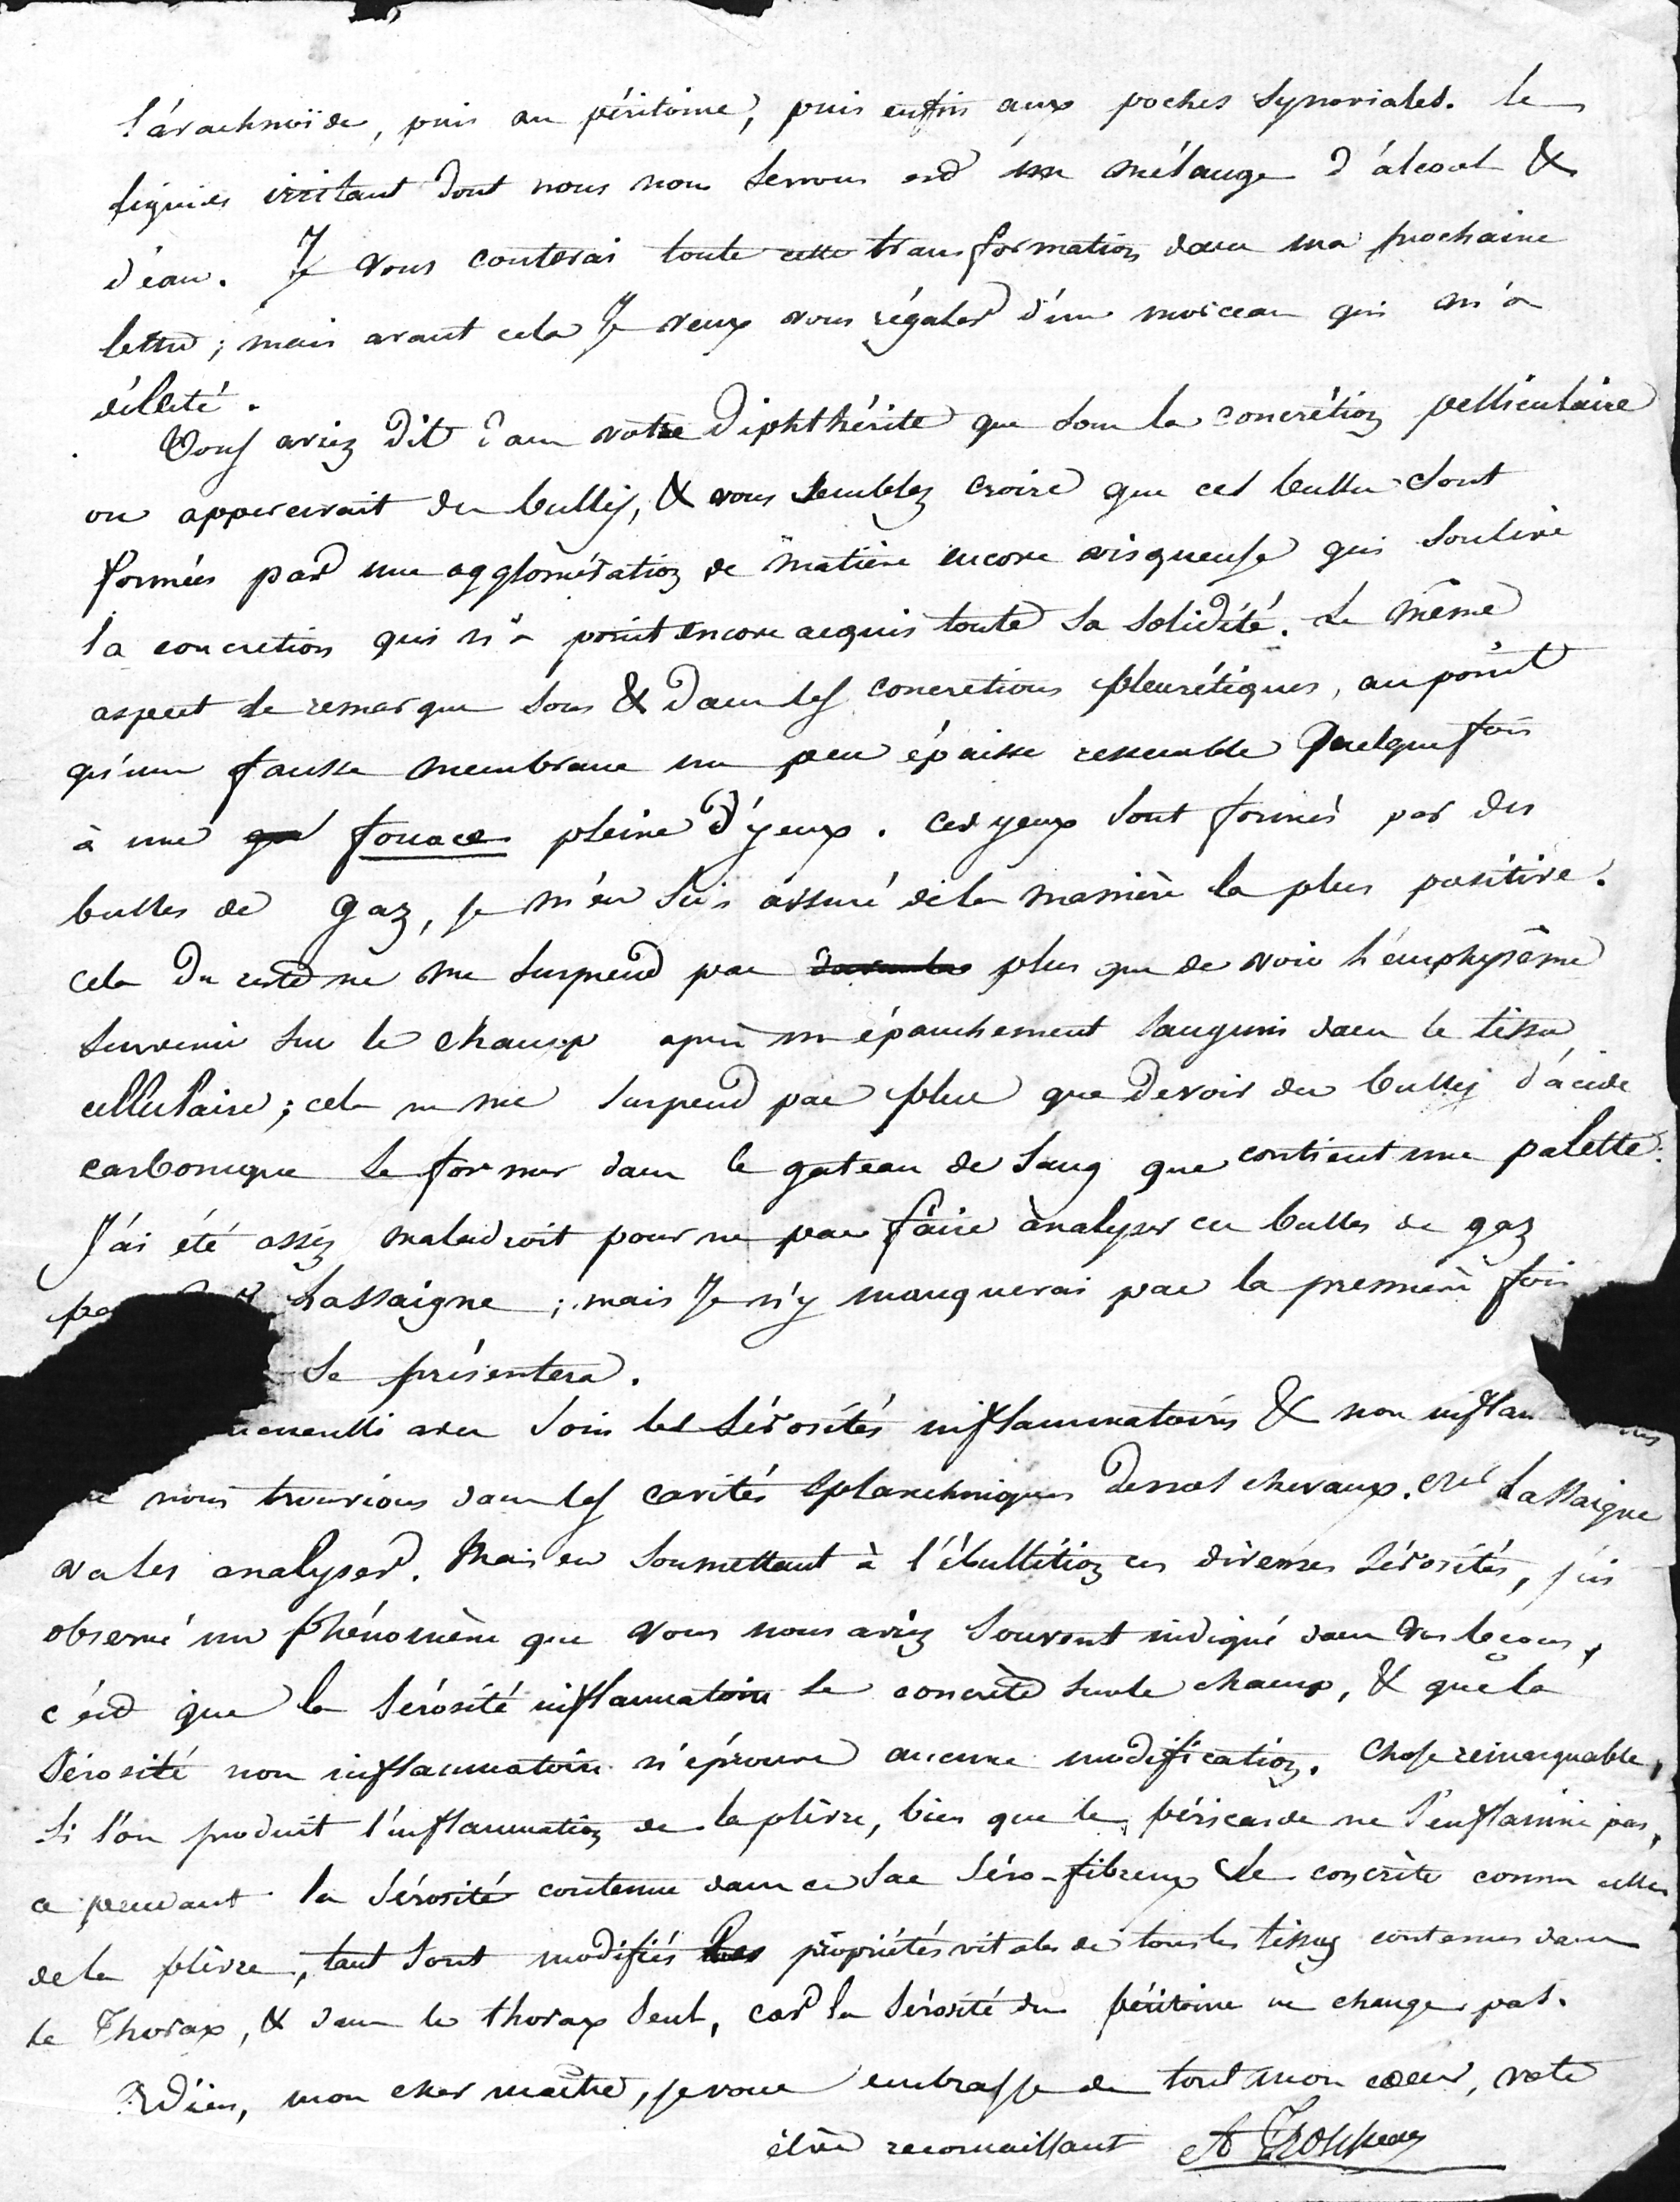 l'arachnoïde, puis au péritoine, puis enfin aux poches synoviales. le
liquide irritant dont nous nous servons est un mélange d'alcool &
d'eau. Je vous conterai toute cette transformation dans ma prochaine
lettre ; mais avant cela Je veux vous régaler d'un morceau qui m'a
délecté.
Vous aviez dit dans votre Diphthérite que sous la concrétion pelliculaire
on appercevait des bulles, & vous semblez croire que ces bulles sont
formées par une agglomération de matière encore visqueuse qui soulève
la concretion qui n'a point encore acquis toute sa solidité. Le même
aspect se remarque sous & dans les concretions pleurétiques, au point
qu'une fausse membrane un peu épaisse ressemble quelquefois
à une fouace pleine d'yeux. ces yeux sont formés par des
bulles de gaz, je m'en suis assuré de la manière la plus positive.
Cela du reste ne me surprend pas plus que de voir l'emphysème
survenir sur le champ après un épanchement sanguin dans le tissu
cellulaire ; cela ne me surprend pas plus que de voir des bulles d'acide
carbonique se former dans le gateau de sang que contient une palette.
J'ai été assez maladroit pour ne pas faire analyser ces bulles de gaz
Lassaigne ; mais Je n'y manquerai pas la première fois
se présentera.
avec soin les sérosités inflammatoires & non inflam
nous trouvions dans les cavités splanchniques de nos chevaux. Mr Lassaigne
va les analyser. Mais en soumettant à l'ébullition ces diverses sérosités, j'ai
observé un phénomène que vous nous aviez souvent indiqué dans vos leçons,
c'est que la sérosité inflammatoire se concrète sur le champ, & que la
sérosité non inflammatoire n'éprouve aucune modification. Chose remarquable,
si l'on produit l'inflammation de la plèvre, bien que le péricarde ne s'enflamme pas,
cependant la sérosité contenue dans ce sac séro-fibreux se concrète comme celle
de la plèvre, tant sont modifiés les propriétés vitales de tous les tissus contenus dans
le Thorax, & dans le thorax seul, car la sérosité du péritoine ne change pas.
Adieu, mon cher maître, je vous embrasse de tout mon coeur, votre
élève reconnaissant A Trousseau